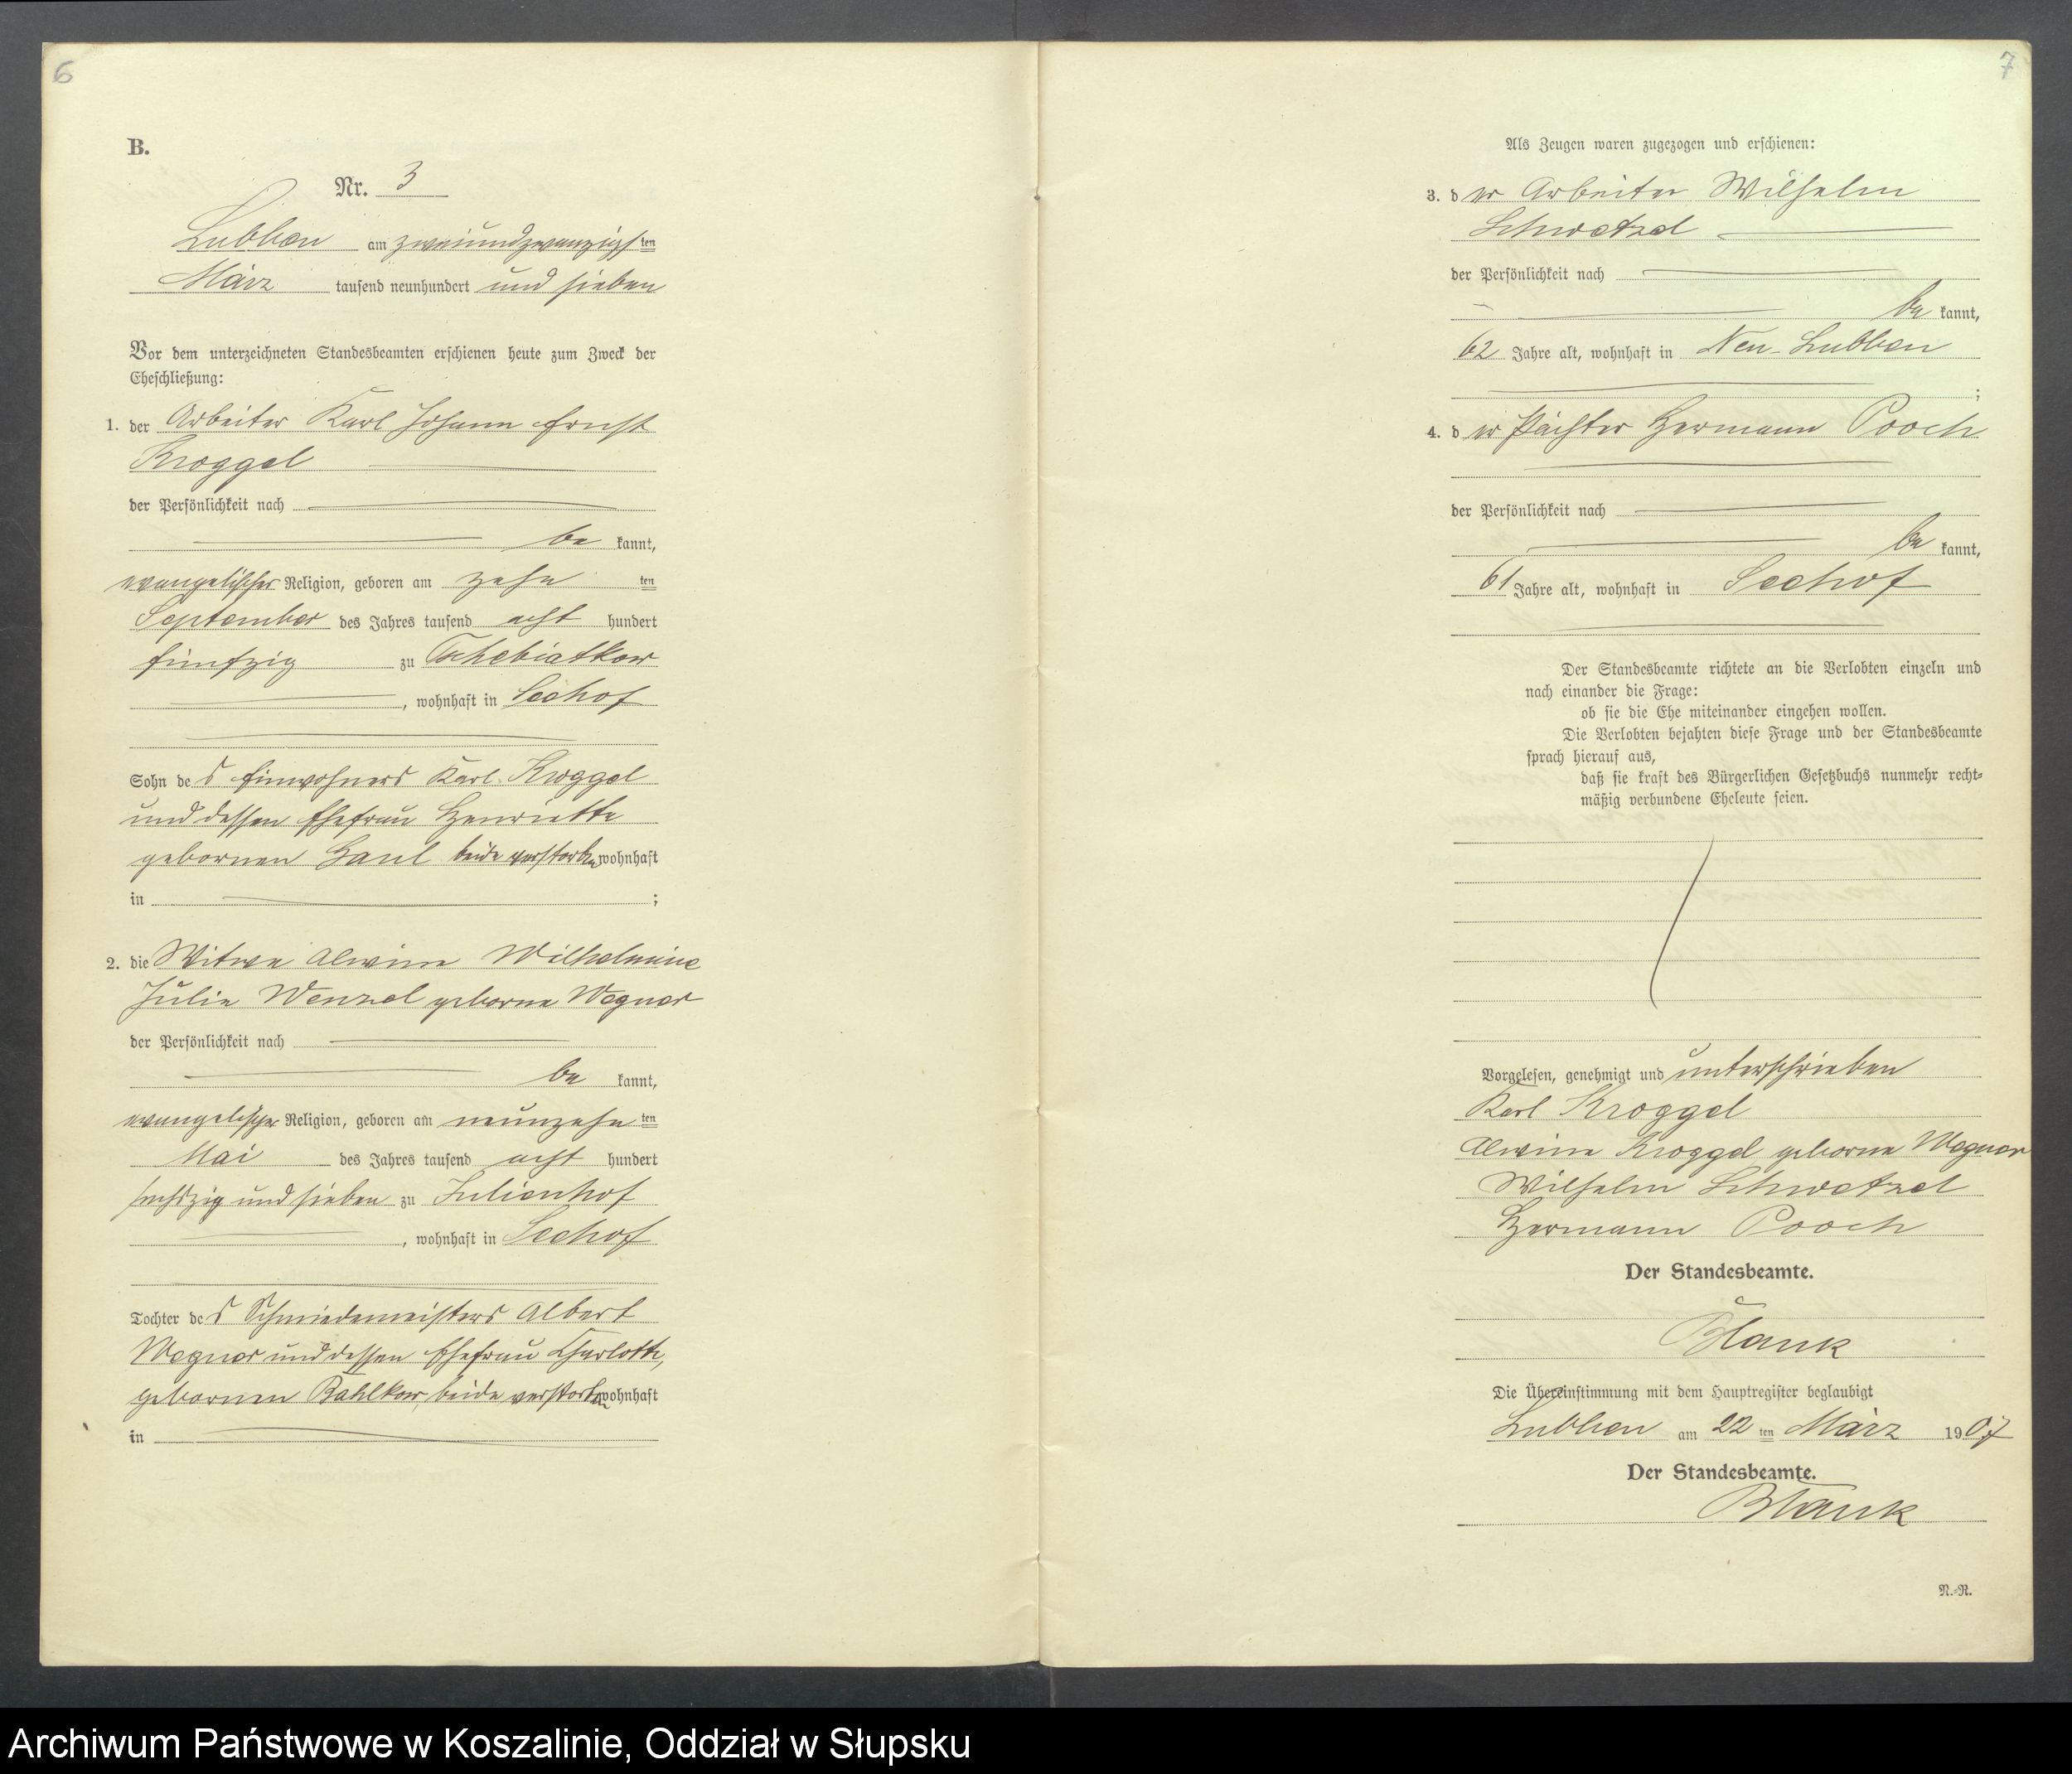 6
B.
Nr. 3
Lubben am zweiundzwanzigsten
März tausend neunhundert und sieben
Vor dem unterzeichneten Standesbeamten erschienen heute zum Zweck der
Eheschließung:
1. der Arbeiter Karl Johann Ernst
Kroggel
der Persönlichkeit nach
be kannt,
evangelischer Religion, geboren am zehn ten
September des Jahres tausend acht hundert
fünfzig zu Tschebiatkow
, wohnhaft in Seehof
Sohn des Einwohners Karl Kroggel
und dessen Ehefrau Henriette
gebornen Haul beide verstorben wohnhaft
in ;
2. die Witwe Alwine Wilhelmine
Julie Wenzel geborne Wegner
der Persönlichkeit nach
be kannt,
evangelischer Religion, geboren am neunzehn ten
Mai des Jahres tausend acht hundert
sechszig und sieben zu Julienhof
, wohnhaft in Seehof
Tochter des Schmiedemeisters Albert
Wegner und dessen Ehefrau Charlotte,
gebornen Bahlkow, beide verstorben wohnhaft
in
7
Als Zeugen waren zugezogen und erschienen:
3. der Arbeiter Wilhelm
Schwetzel
der Persönlichkeit nach
be kannt,
62 Jahre alt, wohnhaft in Neu-Lubben
;
4. der Pächter Hermann Pooch
der Persönlichkeit nach
be kannt,
61 Jahre alt, wohnhaft in Seehof
Der Standesbeamte richtete an die Verlobten einzeln und
nach einander die Frage:
ob sie die Ehe miteinander eingehen wollen.
Die Verlobten bejahten diese Frage und der Standesbeamte
sprach hierauf aus,
daß sie kraft des Bürgerlichen Gesetzbuchs nunmehr recht-
mäßig verbundene Eheleute seien.
Vorgelesen, genehmigt und unterschrieben
Karl Kroggel
Alwine Kroggel geborne Wegner
Wilhelm Schwetzel
Hermann Pooch
Der Standesbeamte.
Blank
Die Übereinstimmung mit dem Hauptregister beglaubigt
Lubben am 22 ten März 1907
Der Standesbeamte.
Blank
N.-R.
Archiwum Państwowe w Koszalinie, Oddział w Słupsku